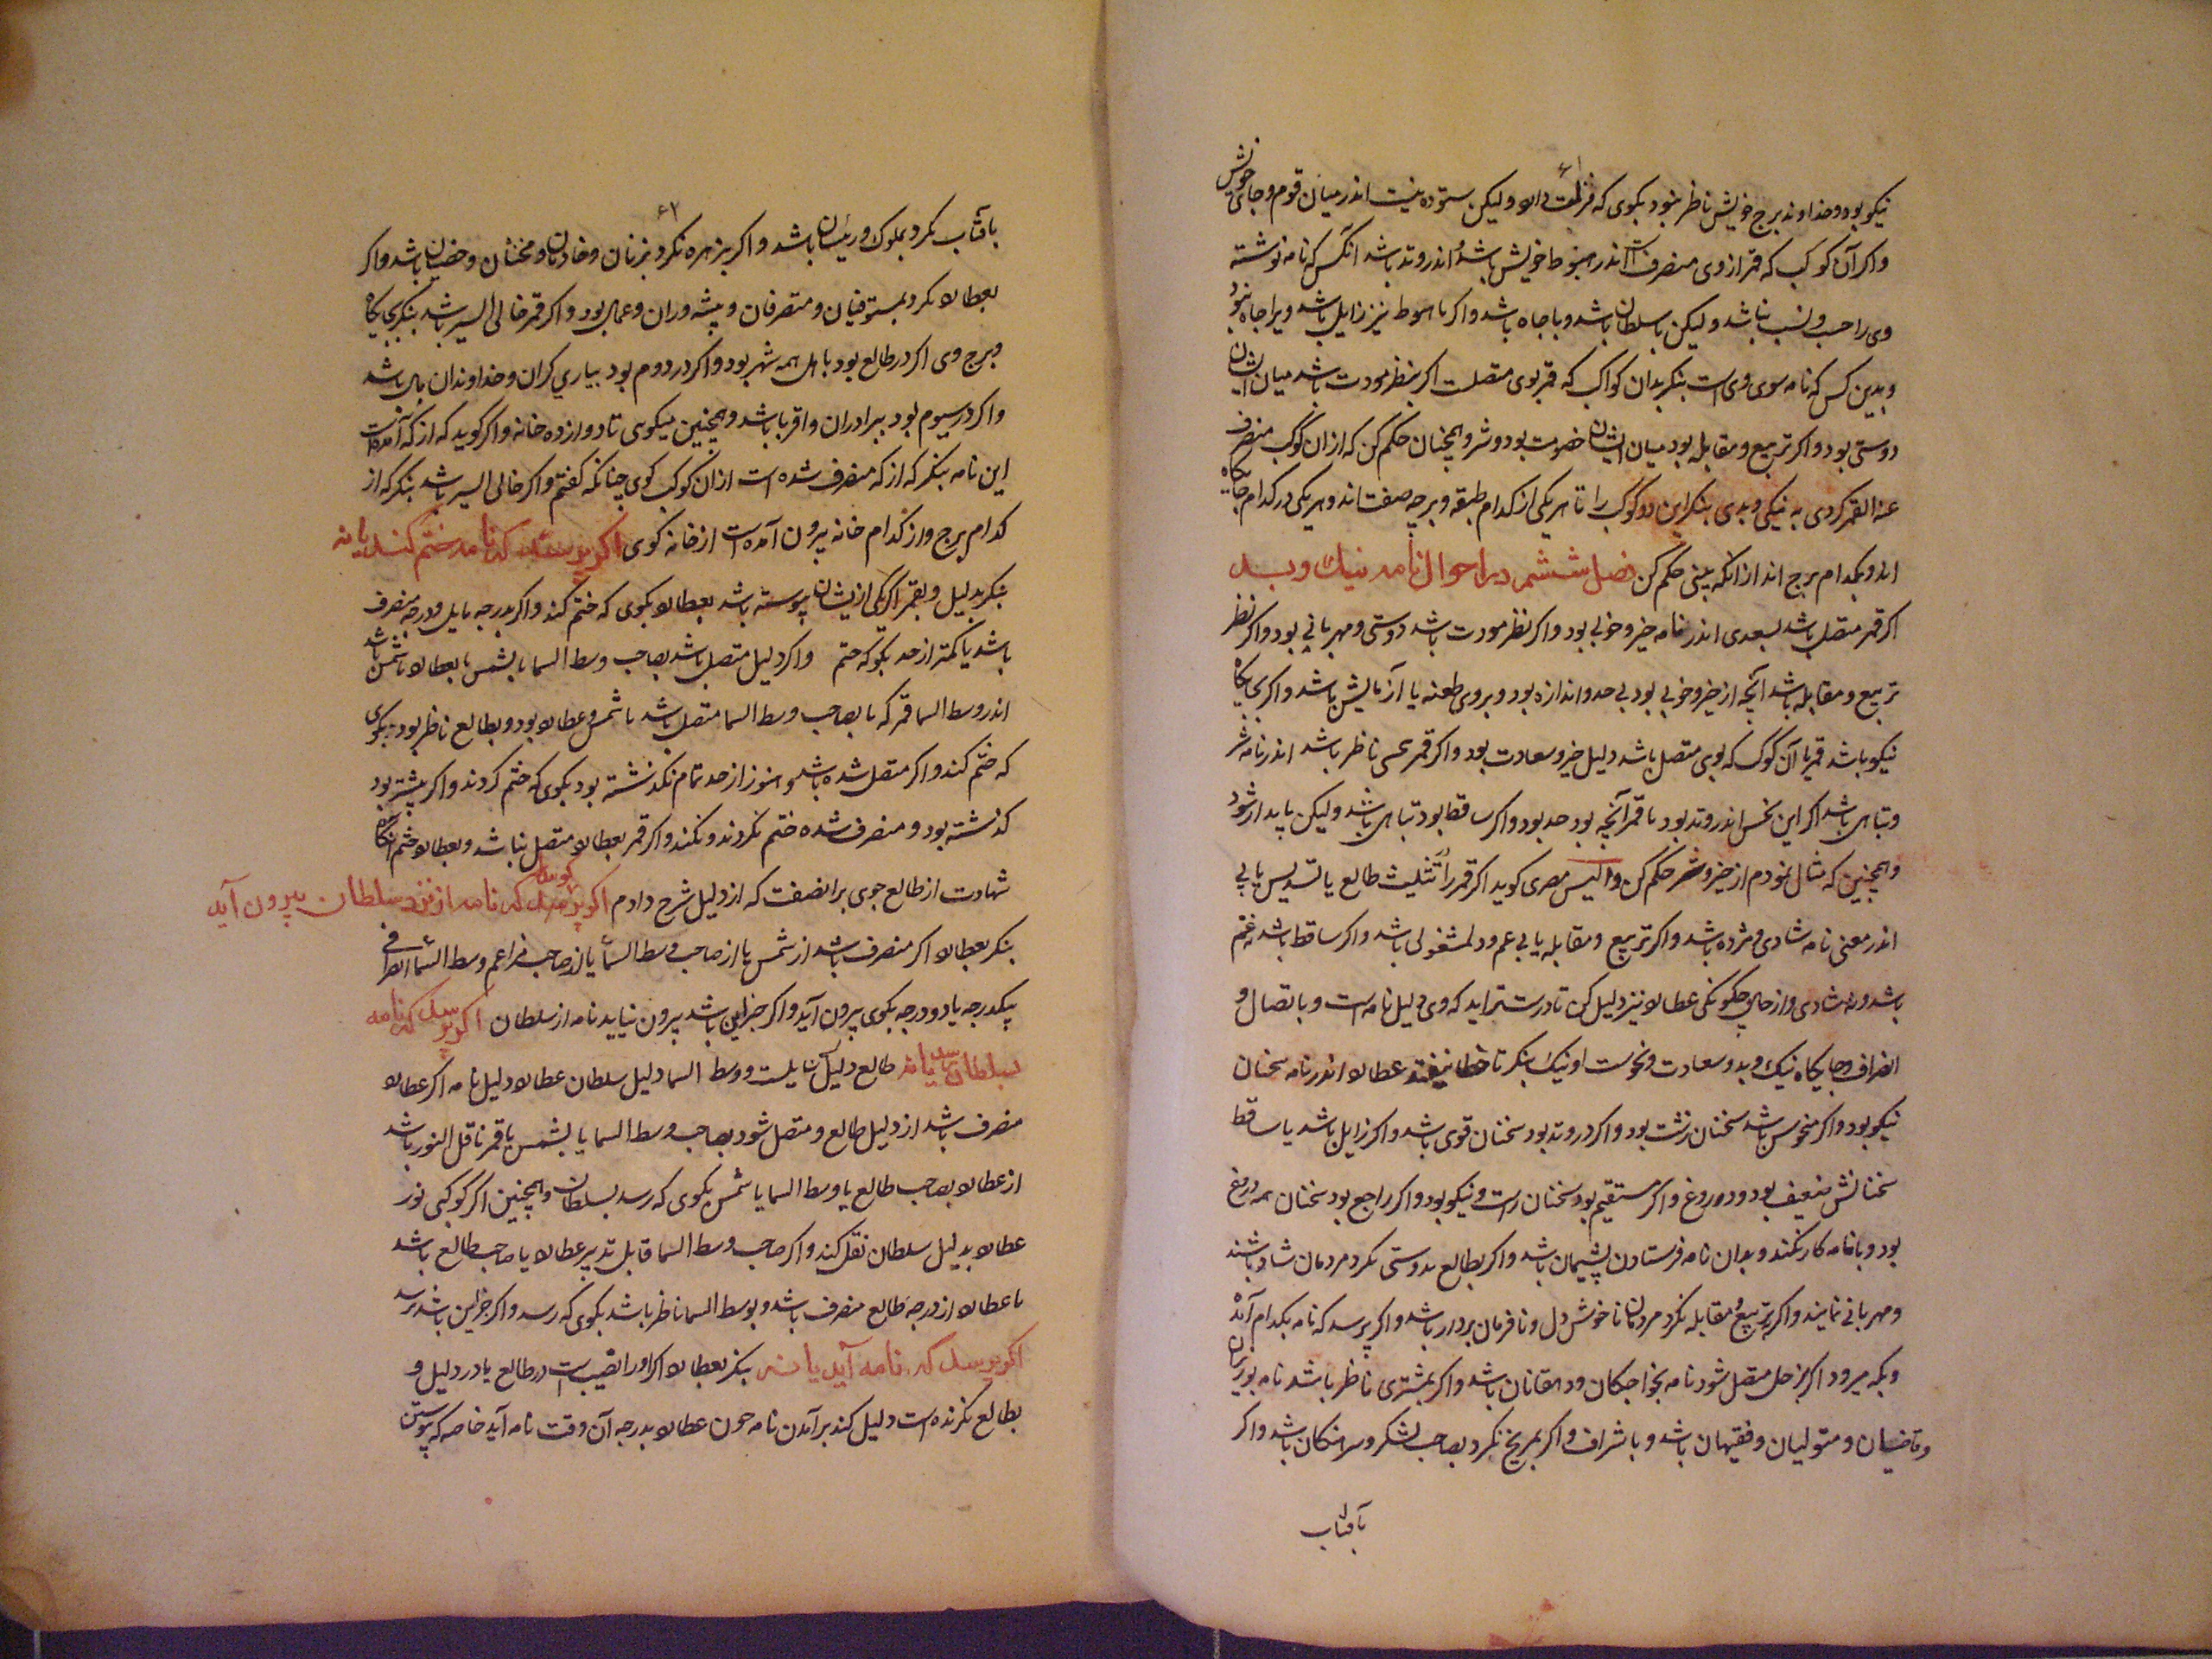 ۶۱
نیکو بود و خداوند برج خویش ناظر نبود بکوی که دارد ولیکن ستوده نیست اندر میان قوم و جای خویش
واکر آن کوکب که قمر از وی منصرف است اندر هبوط خویش باشد و اندر وتد باشد آنکس که نامه نوشته
وی را حسب و نسب نباشد ولیکن با سلطان باشد و با جاه باشد واکر با هبوط نیز زایل باشد ویرا جاه نبود
و بدین کس که نامه سوی وی است بنکر بدان کواکب که قمر بوی متصلست اکر بنظر مودت باشد میان ایشان
دوستی بود واکر تربیع و مقابله بود میان ایشان خصومت بود و شر و همچنان حکم کن که از آن کوکب منصرف
عنه القمر کردی به نیکی و بدی بنکر این دو کوکب را تا هر یکی از کدام طبقه و بر چه صفت اند و هر یکی در کدام جایکاه
اند و بکدام برج اند از آنکه بینی حکم کن فصل ششم در احوال نامه نیك و بد
اکر قمر متصل باشد بسعدی اندر نامه خیر و خوبی بود واکر نظر مودت باشد دوستی و مهربانی بود واکر نظر
تربیع و مقابله باشد آنچه از خیر و خوبی بود بی حد و اندازه بود و بر وی طعنه یا آزمایش باشد واکر بجایکاه
نیکو باشد قمر با آن کوکب که بوی متصل باشد دلیل خیر و سعادت بود واکر قمر بنحسی ناظر باشد اندر نامه شر
و تباهی باشد اکر این نحس اندر وتد بود با قمر آنچه بود بحد بود واکر ساقط بود تباهی باشد ولیکن پایدار شود
و همچنین که مثال نمودم از خیر و شر حکم کن والیس مصری کوید اکر قمر را از تثلیث طالع یا تسدیس یابی
اندر معنی نامه شادی و مژده باشد واکر تربیع و مقابله یابی غم و دلمشغولی باشد واکر ساقط باشد نه غم
باشد و نه شادی و از حال چکونکی عطارد نیز دلیل کن تا درستتر آید که وی دلیل نامه است و باتصال و
انصراف و جایکاه نیك و بد و سعادت و نحوست او نیك بنکر تا خطا نیفتد عطارد اندر نامه سخنان
نیکو بود واکر منحوس باشد سخنان زشت بود واکر در وتد بود سخنان قوی باشد واکر زایل باشد یا ساقط
سخنانش ضعیف بود و دروغ واکر مستقیم بود سخنان راست و نیکو بود واکر راجع بود سخنان همه دروغ
بود و بانامه کار نکنند و بدان نامه فرستادن پشیمان باشد واکر بطالع بدوستی نکرد مردمان شاد باشند
و مهربانی نمایند واکر بتربیع و مقابله نکرد مردمان ناخوش دل و نافرمان بردار باشد واکر پرسد که نامه بکدام آمد
و بکه میرود اکر بزحل متصل شود نامه بخواجکان و دهقانان باشد واکر بمشتری ناظر باشد نامه بوزیران
و قاضیان و متولیان و فقیهان باشد و باشراف واکر بمریخ نکرد بصاحب لشکر و سرهنکان باشد واکر
بآفتاب
۶۲
بآفتاب نکرد بملوك و رئیسان باشد واکر بزهره نکرد بزنان و خادمان و مخنثان و خصیان باشد واکر
بعطارد نکرد بمستوفیان و متصرفان و پیشه وران و عمال بود واکر قمر خالی السیر باشد بنکر بجایکاه
و برج وی اکر در طالع بود باهل همه شهر بود واکر در دوم بود بیاری کران و خداوندان مال باشد
واکر در سیوم بود ببرادران و اقربا باشد و همچنین میکوی تا دوازده خانه واکر کوید که از که آمده است
این نامه بنکر که از که منصرف شده است از آن کوکب کوی چنانکه کفتم واکر خالی السیر باشد بنکر که از
کدام برج و از کدام خانه بیرون آمده است از خانه کوی اکر پرسند که نامه ختم کنند یا نه
بنکر بدلیل و بقمر اکر یکی از ایشان پیوسته باشد بعطارد بکوی که ختم کند واکر بدرجه مایل و درجه منصرف
باشد یا کمتر از حد بکو که ختم واکر دلیل متصل باشد بصاحب وسط السما یا بشمس یا بعطارد با شمس باشد
اندر وسط السما قمر که با بصاحب وسط السما متصل باشد با شمس و عطارد بود و بطالع ناظر بود بکوی
که ختم کند واکر متصل شده باشد و هنوز از حد تمام نکذشته بود بکوی که ختم کردند واکر بیشتر بود
کذشته بود و منصرف شده ختم نکردند و نکنند واکر قمر بعطارد متصل نباشد و بعطارد ختم آنکاه
شهادت از طالع جوی بر آنصفت که از دلیل شرح دادم اکر پرسد که نامه از نزد سلطان بیرون آید
بنکر بعطارد اکر منصرف باشد از شمس یا از صاحب وسط السما یا از صاحب وسط السما انصرافی
بیکدرجه یا دو درجه بکوی بیرون آید واکر جز این باشد بیرون نیاید نامه از سلطان اکر پرسد که نامه
بسلطان رسد یا نه طالع دلیل است و وسط السما دلیل سلطان عطارد دلیل نامه اکر عطارد
منصرف باشد از دلیل طالع و متصل شود بصاحب وسط السما یا بشمس یا قمر ناقل النور باشد
از عطارد بصاحب طالع یا وسط السما یا شمس بکوی که رسد بسلطان و همچنین اکر کوکبی نور
عطارد بدلیل سلطان نقل کند واکر صاحب وسط السما قابل تدبیر عطارد یا صاحب طالع باشد
یا عطارد از درجه طالع منصرف باشد و بوسط السما ناظر باشد بکوی که رسد واکر جز این باشد نرسد
اکر پرسد که نامه آید یا نه بنکر بعطارد اکر او را نصیب است در طالع یا در دلیل و
بطالع نکرنده است دلیل کند بر آمدن نامه چون عطارد بدرجه آن وقت نامه آید خاصه که پیوستن